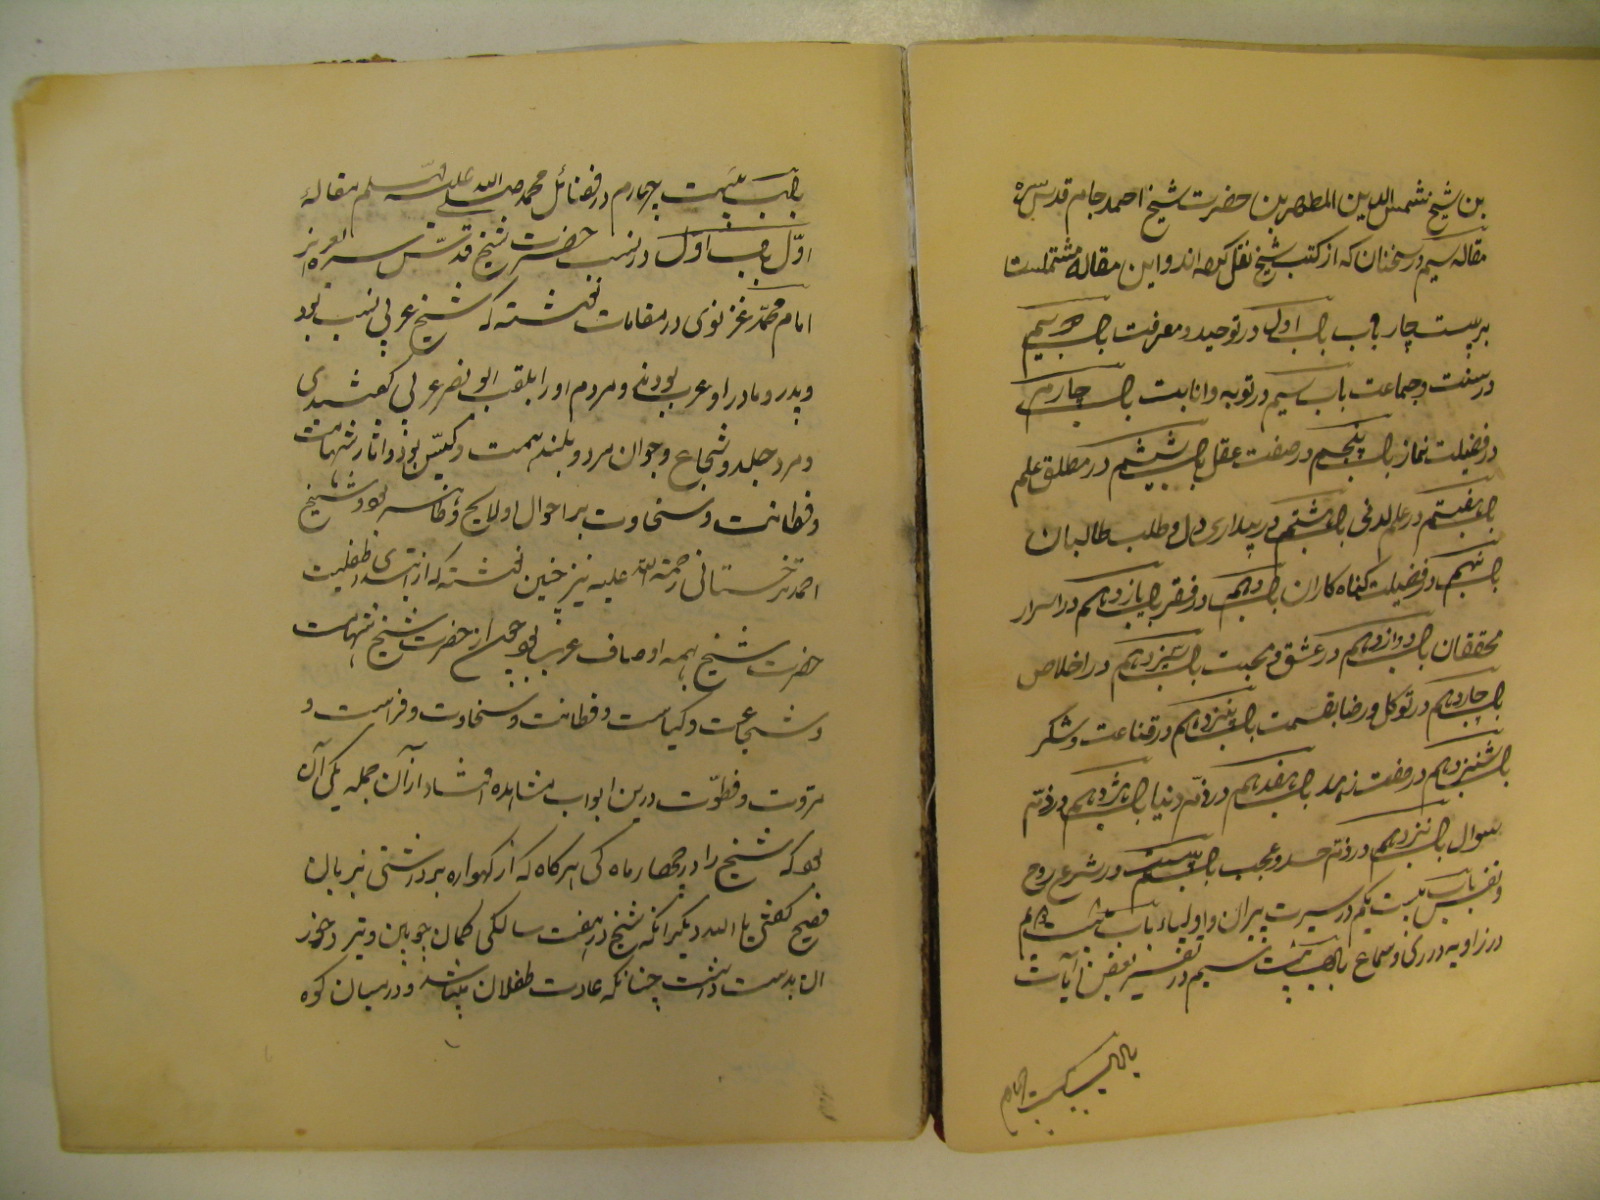 بن شیخ شمس الدین المطهر بن حضرت شیخ احمد جام قدس سره
مقاله سیم در سخنان که از کتب شیخ نقل کرده اند و این مقاله مشتملست
بر بیست چار باب باب اول در توحید و معرفت باب دویم
در سنت و جماعت باب سیم در توبه و انابت باب چارم
در فضیلت نماز باب پنجم در صفت عقل باب ششم در مطلق علم
باب هفتم در علم لدنی باب هشتم در بیداری دل و طلب طالبان
باب نهم در فضیلت گناه کاران باب دهم در فقر باب یازدهم در اسرار
محققان باب دوازدهم در عشق و محبت باب سیزدهم در اخلاص
باب چاردهم در توکل و رضا بقسمت باب پنزدهم در قناعت و شکر
باب شنزدهم در صفت زهد باب هفدهم در ذم دنیا باب هژدهم در ذم
سوال باب نزدهم در ذم حسد و عجب باب بیستم در شرع روح
و نفس باب بیست یکم در سیرت پیران و اولیاء باب بیست دویم
در زاویه داری و سماع باب بیست سیم در تفسیر بعض آیات
باب بیست چهارم
باب بیست چهارم در فضائل محمد صلی الله علیه وسلم مقاله
اول باب اول در نسب حضرت شیخ قدس سره العزیز
امام محمد غزنوی در مقامات نوشته که شیخ عربی نسب بود
و پدر و مادر او عرب بودند و مردم او را بلقب ابو نصر عربی گفتندی
و مرد جلد و شجاع و جوان مرد و بلند همت و کیّس بود و اثار شهامت
و فطانت و سخاوت بر احوال او لایح و ظاهر بود و شیخ
احمد ترخستانی رحمة الله علیه نیز چنین نوشته که از ابتدای طفلیت
حضرت شیخ بهمه اوصاف عرب بود چه از حضرت شیخ شهامت
و شجاعت و کیاست و فطانت و سخاوت و فراست و
مروت و فطوّت درین ابواب مشاهده افتاد از آن جمله یکی آن
بود که شیخ را در چهار ماه کی هر گاه که از گهواره برداشتی بزبان
فصیح گفتی یا الله دیگر انکه شیخ در هفت سالگی کمان چوبین و تیر در خور
ان بدست داشت چنانکه عادت طفلان باشد و در میان کوه